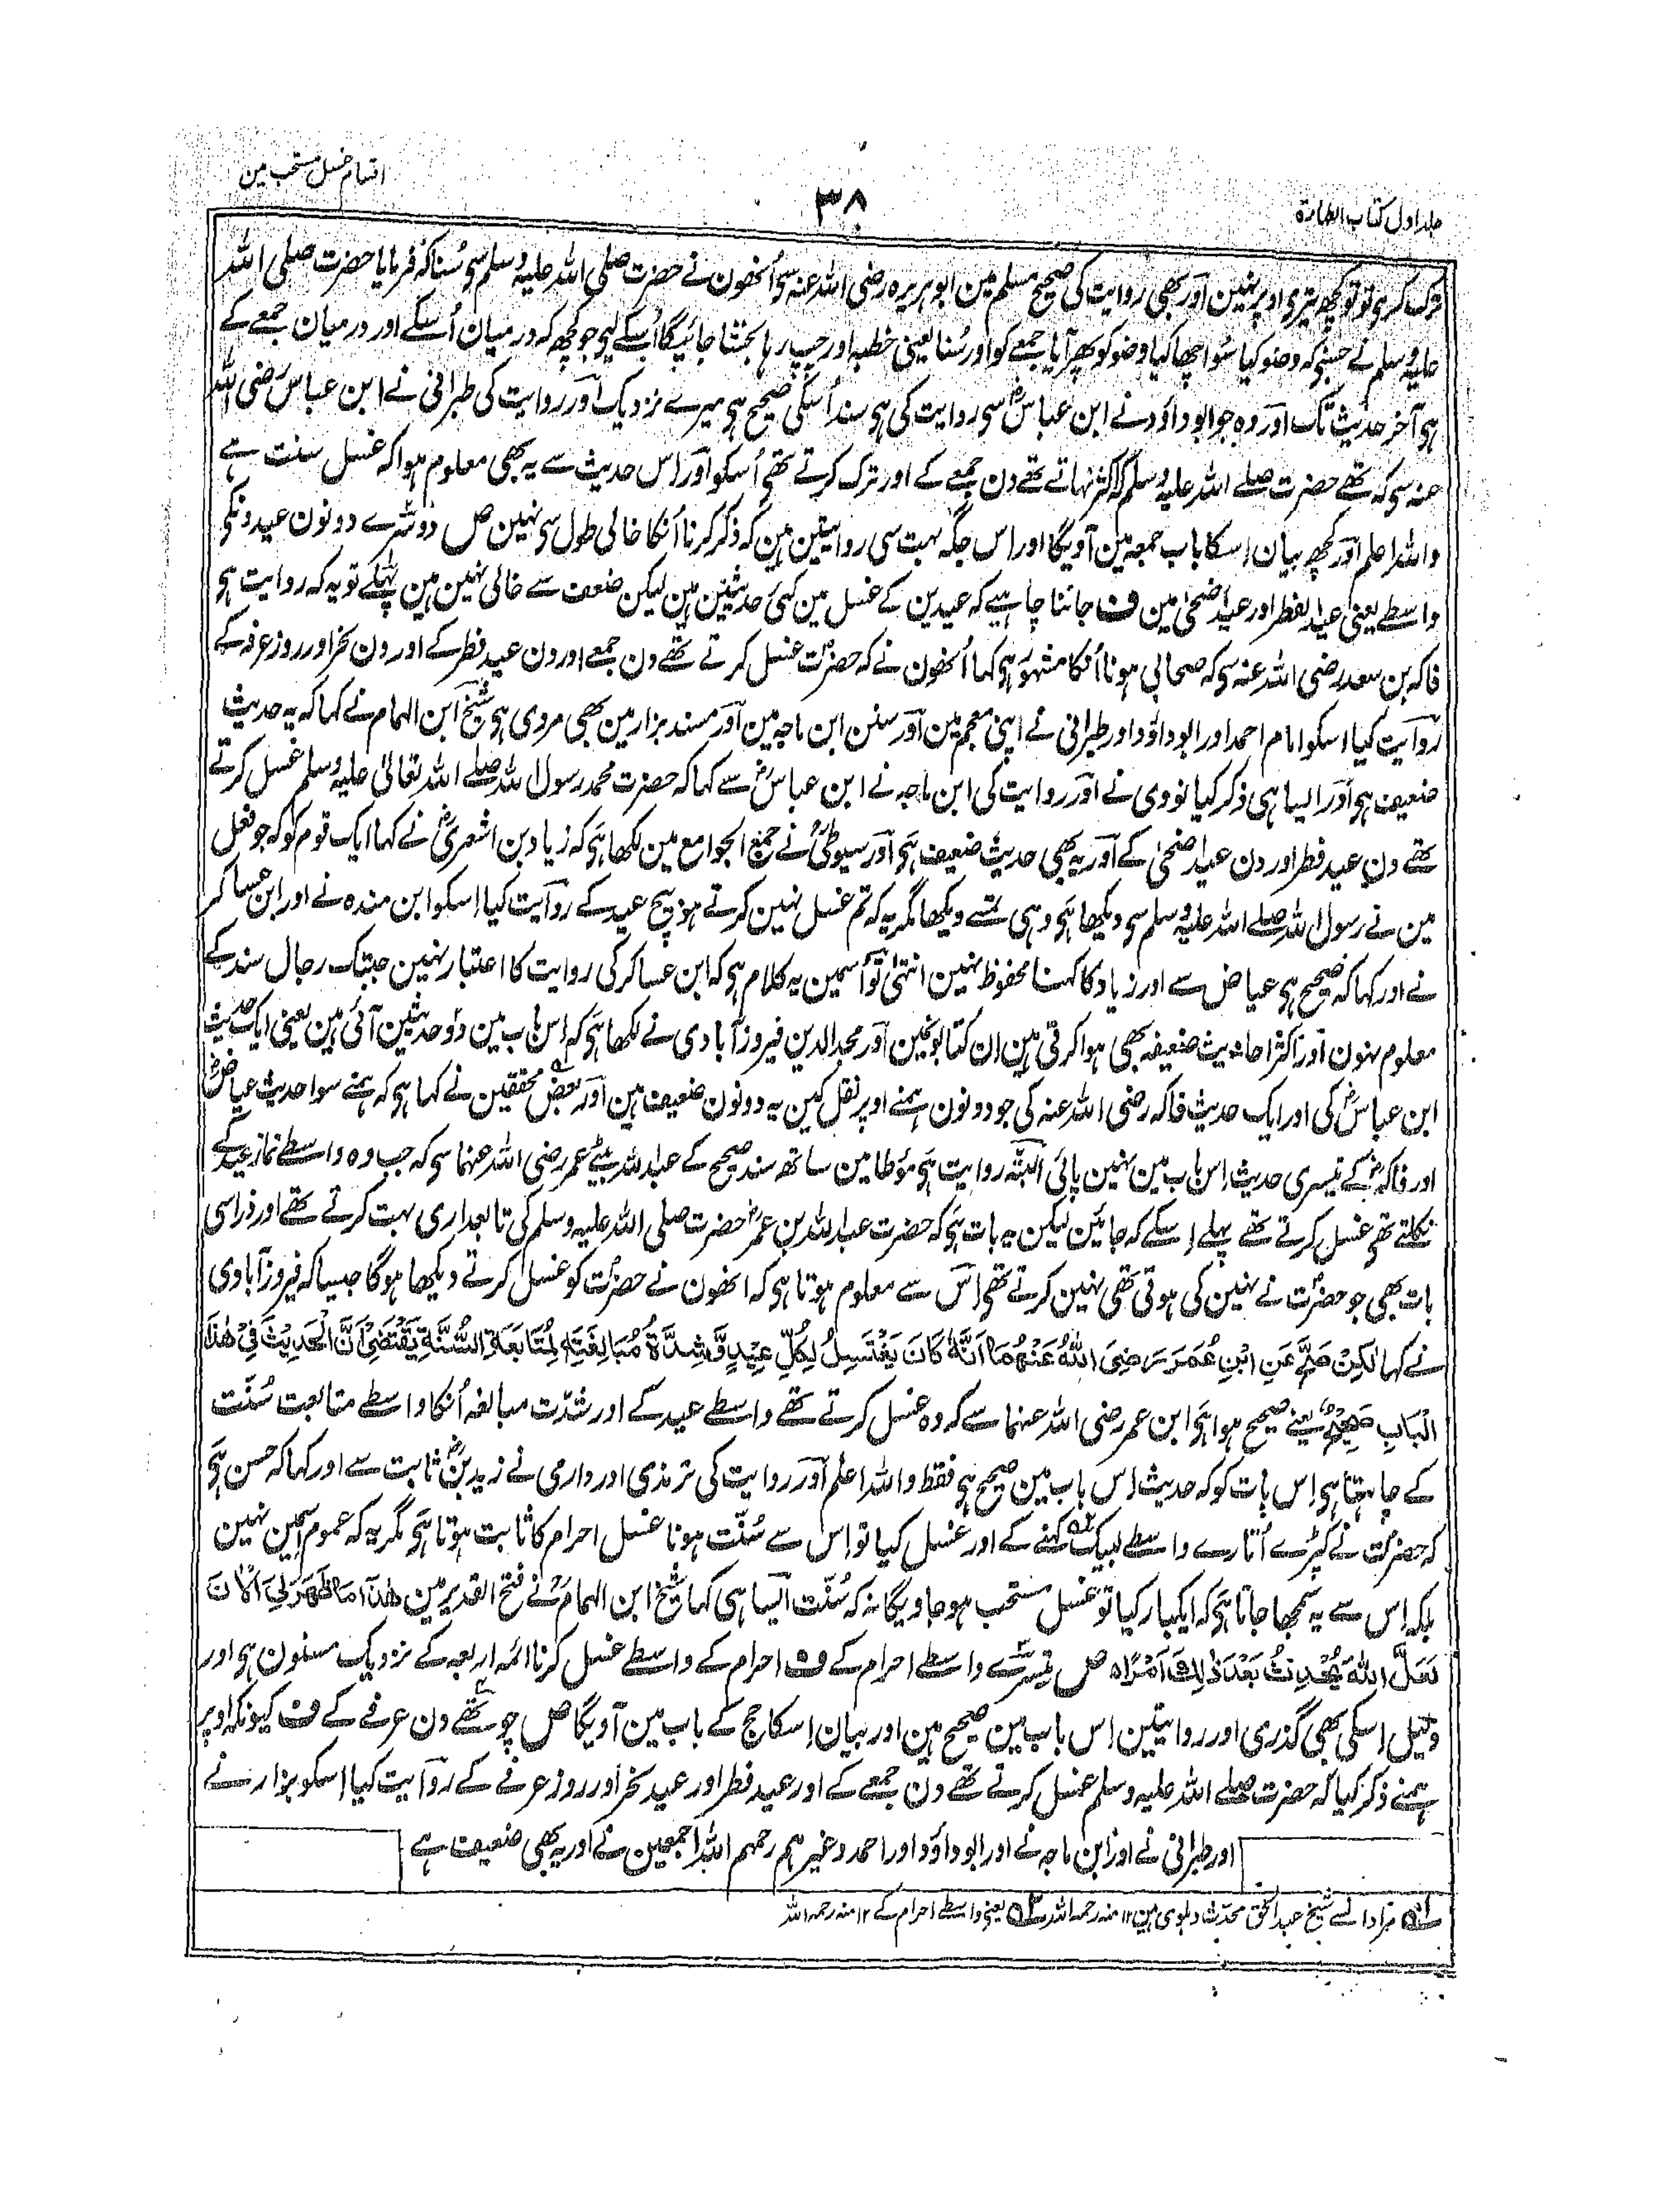 جلد اول کتاب الطہارۃ
۳۸
اقسام غسل مستحب مین
ترک کرے تو تو کچھ تیرے اوپر نہین اور بھی روایت کی صحیح مسلم مین ابو ہریرہ رضی اللہ عنہ سی اُنھون نے حضرت صلی اللہ علیہ وسلم سی سُنا کہ فرمایا حضرت صلی اللہ
علیہ وسلم نے جسنے کہ وضو کیا سو اچھا کیا وضو کو پھر آیا جمعے کو اور سُنا یعنی خطبہ اور چپ رہا بخشا جائیگا اُسکے لیے جو کچھ کہ درمیان اُسکے اور درمیان جمعے کے
ہی آخر حدیث تک اور وہ جو ابو داؤد نے ابن عباسؓ سی روایت کی ہی سند اُسکی صحیح ہی میرے نزدیک اور روایت کی طبرانی نے ابن عباس رضی اللہ
عنہ سی کہ تھے حضرت صلے اللہ علیہ وسلم کہ اکثر نہاتے تھے دن جمعے کے اور ترک کرتے تھے اُسکو اور اس حدیث سے یہ بھی معلوم ہوا کہ غسل سنت ہے
واللہ اعلم اور کچھ بیان اِسکا باب جمعہ مین آویگا اور اس جگہ بہت سی روایتین ہین کہ ذکر کرنا اُنکا خالی طول سی نہین ص دوسرے دونون عیدونکے
واسطے یعنی عید الفطر اور عید اضحیٰ مین ف جاننا چاہیے کہ عیدین کے غسل مین کئی حدیثین ہین لیکن ضعف سے خالی نہین ہین پہلے تو یہ کہ روایت ہی
فاکہ بن سعد رضی اللہ عنہ سی کہ صحابی ہونا اُنکا مشہور ہی کہا اُنھون نے کہ حضرتؐ غسل کرتے تھے دن جمعے اور دن عید فطر کے اور دن نحر اور روز عرفہ کے
روایت کیا اِسکو امام احمد اور ابو داؤد اور طبرانی نے اپنی معجم مین اور سنن ابن ماجہ مین اور مسند بزار مین بھی مروی ہی شیخ ابن الہمام نے کہا کہ یہ حدیث
ضعیف ہی اور ایسا ہی ذکر کیا نووی نے اور روایت کی ابن ماجہ نے ابن عباسؓ سے کہا کہ حضرت محمد رسول اللہ صلے اللہ تعالیٰ علیہ وسلم غسل کرتے
تھے دن عید فطر اور دن عید اضحیٰ کے اور یہ بھی حدیث ضعیف ہی اور سیوطیؒ نے جمع الجوامع مین لکھا ہی کہ زیاد بن اشعریؓ نے کہا ایک قوم کو کہ جو فعل
مین نے رسول اللہ صلے اللہ علیہ وسلم سی دیکھا ہی وہی تمسے دیکھا مگر یہ کہ تم غسل نہین کرتے ہو بیچ عید کے روایت کیا اِسکو ابن مندہ نے اور ابن عساکر
نے اور کہا کہ صحیح ہی عیاض سے اور زیاد کا کہنا محفوظ نہین انتہیٰ تو اُسمین یہ کلام ہی کہ ابن عساکر کی روایت کا اعتبار نہین جبتک رجال سند کے
معلوم نہون اور اکثر احادیث ضعیفہ بھی ہوا کرتی ہین ان کتابونمین اور مجد الدین فیروز آبادی نے لکھا ہی کہ اِس باب مین دو حدیثین آئی ہین یعنی ایک حدیث
ابن عباسؓ کی اور ایک حدیث فاکہ رضی اللہ عنہ کی جو دونون ہمنے اوپر نقل کین یہ دونون ضعیف ہین اور بعض محققین نے کہا ہی کہ ہمنے سوا حدیث عیاضؓ
اور فاکہؓ کے تیسری حدیث اِس باب مین نہین پائی البتہ روایت ہی مؤطا مین ساتھ سند صحیح کے عبد اللہ بیٹے عمر رضی اللہ عنہما سی کہ جب وہ واسطے نماز عید کے
نکلتے تھے غسل کرتے تھے پہلے اِسکے کہ جائین لیکن یہ بات ہی کہ حضرت عبد اللہ بن عمرؓ حضرت صلی اللہ علیہ وسلم کی تابعداری بہت کرتے تھے اور ذراسی
بات بھی جو حضرتؐ نے نہین کی ہوتی تھی نہین کرتے تھے اِس سے معلوم ہوتا ہی کہ انھون نے حضرتؐ کو غسل کرتے دیکھا ہوگا جیسا کہ فیروز آبادی
نے کہا لٰکِنْ صَحَّ عَنِ ابْنِ عُمَرَ رَضِیَ اللہُ عَنْہُمَا اَنَّہٗ کَانَ یَغْتَسِلُ لِکُلِّ عِیْدٍ وَّشِدَّۃُ مُبَالِغَتِہٖ لِمُتَابَعَۃِ السُّنَّۃِ یَقْتَضِیْ اَنَّ الْحَدِیْثَ فِیْ ھٰذَا
الْبَابِ صَحِیْحٌ یعنے صحیح ہوا ہی ابن عمر رضی اللہ عنہما سے کہ وہ غسل کرتے تھے واسطے عید کے اور شدّت مبالغہ اُنکا واسطے متابعت سُنّت
کے چاہتا ہی اِس بات کو کہ حدیث اِس باب مین صحیح ہی فقط واللہ اعلم اور روایت کی ترمذی اور دارمی نے زید بن ثابتؓ سے اور کہا کہ حسن ہی
کہ حضرتؐ نے کپڑے اُتارے واسطے لبیک کہنے کے اور غسل کیا تو اِس سے سُنّت ہونا غسل احرام کا ثابت ہوتا ہی مگر یہ کہ عموم اِسمین نہین
بلکہ اِس سے یہ سمجھا جاتا ہی کہ ایکبار کیا تو غسل مستحب ہوجاویگا نہ کہ سُنّت ایسا ہی کہا شیخ ابن الہمامؒ نے فتح القدیر مین ھٰذَا مَا ظَھَرَ لِیَ الْاٰنَ
لَعَلَّ اللہَ یُحْدِثُ بَعْدَ ذٰلِکَ اَمْرًا ہ ص تیسرے واسطے احرام کے ف احرام کے واسطے غسل کرنا ائمہ اربعہ کے نزدیک مسنون ہی اور
دلیل اِسکی بھی گذری اور روایتین اِس باب مین صحیح ہین اور بیان اِسکا حج کے باب مین آویگا ص چوتھے دن عرفے کے ف کیونکہ اوپر
ہمنے ذکر کیا کہ حضرت صلے اللہ علیہ وسلم غسل کرتے تھے دن جمعے کے اور عید فطر اور عید نحر اور روز عرفے کے روایت کیا اِسکو بزار نے
اور طبرانی نے اور ابن ماجہ نے اور ابو داؤد اور احمد وغیرہم رحمہم اللہ اجمعین نے اور یہ بھی ضعیف ہے
لہ مراد اسے شیخ عبد الحق محدّث دہلوی ہین ۱۲ منہ رحمہ اللہ ۲ہ یعنی واسطے احرام کے ۱۲ منہ رحمہ اللہ